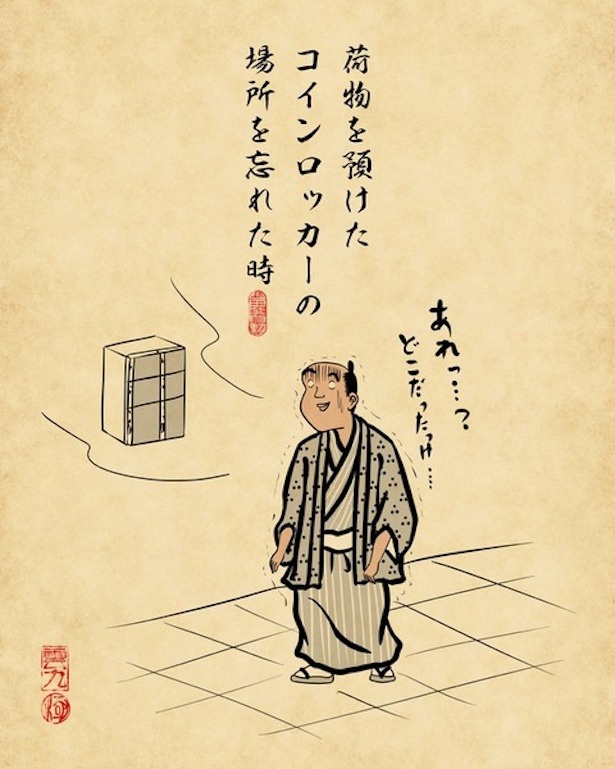 荷物を預けた
コインロッカーの
場所を忘れた時
あれっ…?
どこだったっけ…